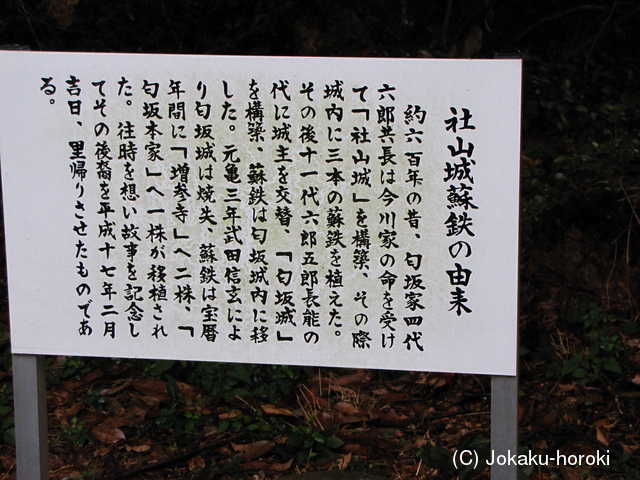 社山城蘇鉄の由来
約六百年の昔、匂坂家四代
六郎共長は今川家の命を受け
て「社山城」を構築、その際
城内に三本の蘇鉄を植えた。
その後十一代六郎五郎長能の
代に城主を交替、「匂坂城」
を構築、蘇鉄は匂坂城内に移
した。元亀三年武田信玄によ
り匂坂城は焼失、蘇鉄は宝暦
年間に「増参寺」へ二株、「
匂坂本家」へ一株が移植され
た。往時を想い故事を記念し
てその後裔を平成十七年二月
吉日、里帰りさせたものであ
る。
(C) Jokaku-horoki